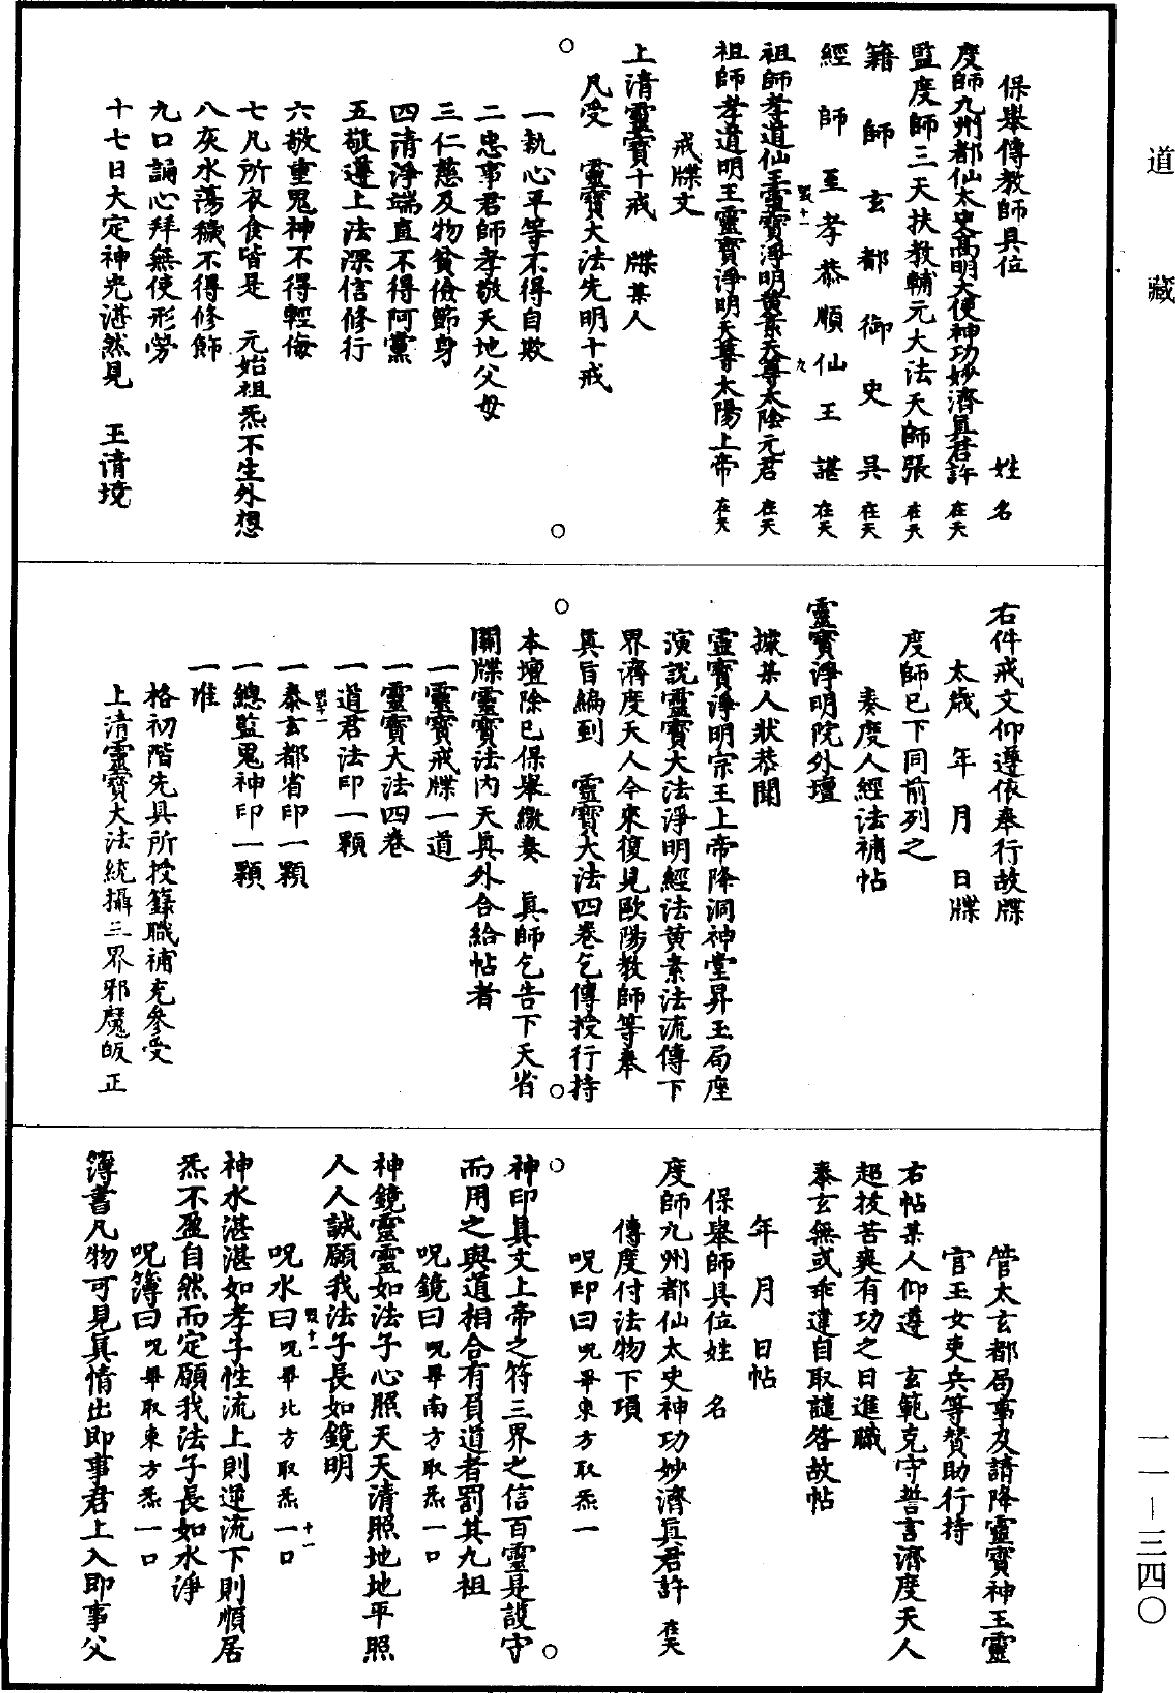 道藏
保舉傳教師具位　姓名
度師九州都仙太史高明大使神功妙濟眞君許在天
監度師三天扶教輔元大法天師張在天
籍師玄都御史吳在天
經師至孝恭順仙王諶在天
祖師孝道仙王靈寶淨明黃素天尊太陰元君在天
四十一　九
祖師孝道明王靈寶淨明天尊太陽上帝在天
戒牒文
上清靈寶十戒　牒某人
凡受　靈寶大法先明十戒
一執心平等不得自欺
二忠事君師孝敬天地父母
三仁慈及物貧儉節身
四清淨端直不得阿黨
五敬遵上法深信修行
六敬重鬼神不得輕侮
七凡所衣食皆是　元始祖炁不生外想
八灰水蕩穢不得修飾
九口誦心拜無使形勞
十七日大定神光湛然見　玉清境
右件戒文仰遵依奉行故牒
太歲　年　月　日牒
度師已下同前列之
奏度人經法補帖
靈寶淨明院外壇
據某人狀恭聞
靈寶淨明宗王上帝降洞神堂昇玉局座
演說靈寶大法淨明經法黃素法流傳下
界濟度天人今來復見歐陽教師等奉
眞旨編到　靈寶大法四卷乞傳授行持
本壇除已保舉繳奏　眞師乞告下天省
關牒靈寶法內天眞外合給帖者
一靈寶戒牒一道
一靈寶大法四卷
一道君法印一顆
一泰玄都省印一顆
一總監鬼神印一顆
一准
格初階先具所授籙職補充參受
上清靈寶大法統攝三界邪魔皈正
管太玄都局事及請降靈寶神王靈
官玉女吏兵等贊助行持
右帖某人仰遵　玄範克守誓言濟度天人
超拔苦爽有功之日進職
奉玄無或乖違自取譴咎故帖
年　月　日帖
保舉師具位姓　名
度師九州都仙太史神功妙濟眞君許在天
傳度付法物下項
呪印曰呪畢東方取炁一
神印具文上帝之符三界之信百靈是護守
而用之與道相合有負道者罰其九祖
呪鏡曰呪畢南方取炁一口
神鏡靈靈如法子心照天天清照地地平照
人人誠願我法子長如鏡明
四十一　十一
呪水曰呪畢北方取炁一口
神水湛湛如孝子性流上則逆流下則順居
炁不盈自然而定願我法子長如水淨
呪簿曰呪畢取東方炁一口
簿書凡物可見眞情出即事君上入即事父
一一—三四〇